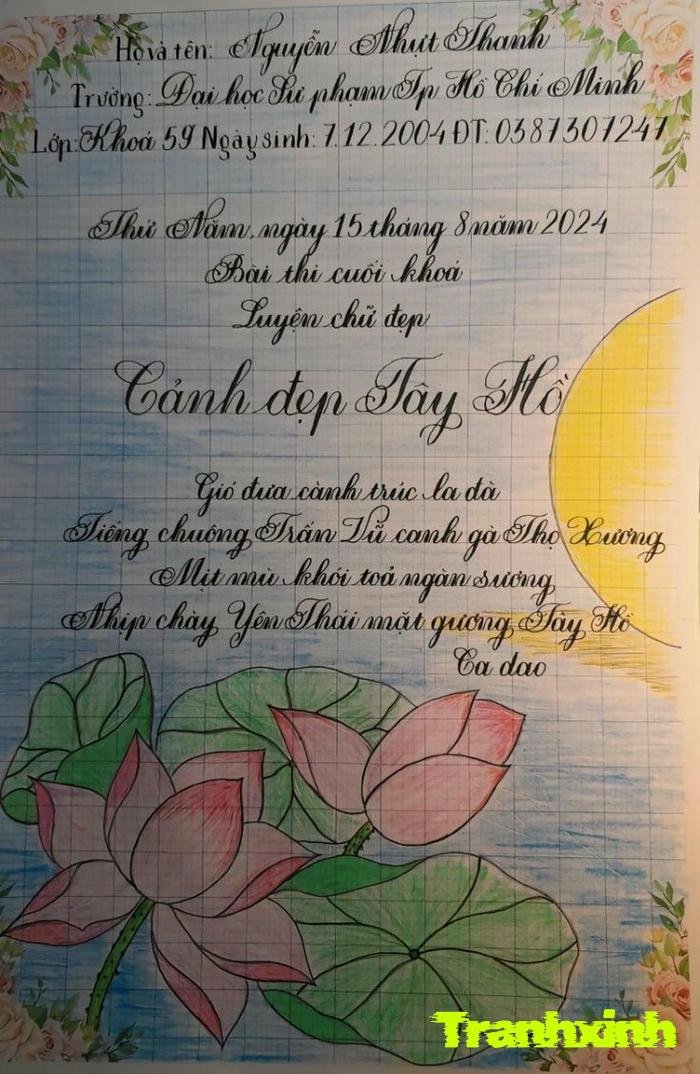 Họ và tên: Nguyễn Nhựt Thanh
Trường: Đại học Sư phạm Tp Hồ Chí Minh
Lớp: Khoá 59 Ngày sinh: 7.12.2004 ĐT: 0387307247
Thứ Năm, ngày 15 tháng 8 năm 2024
Bài thi cuối khoá
Luyện chữ đẹp
Cảnh đẹp Tây Hồ
Gió đưa cành trúc la đà
Tiếng chuông Trấn Vũ canh gà Thọ Xương
Mịt mù khói toả ngàn sương
Nhịp chày Yên Thái mặt gương Tây Hồ
Ca dao
Tranhxinh